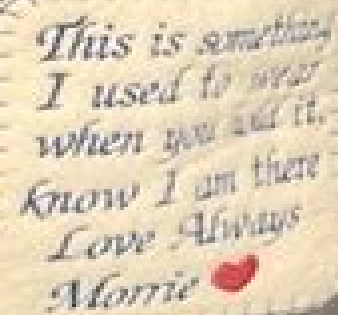 This is something
I used to wear
when you
it.
know I am there
Love Always
Morrie